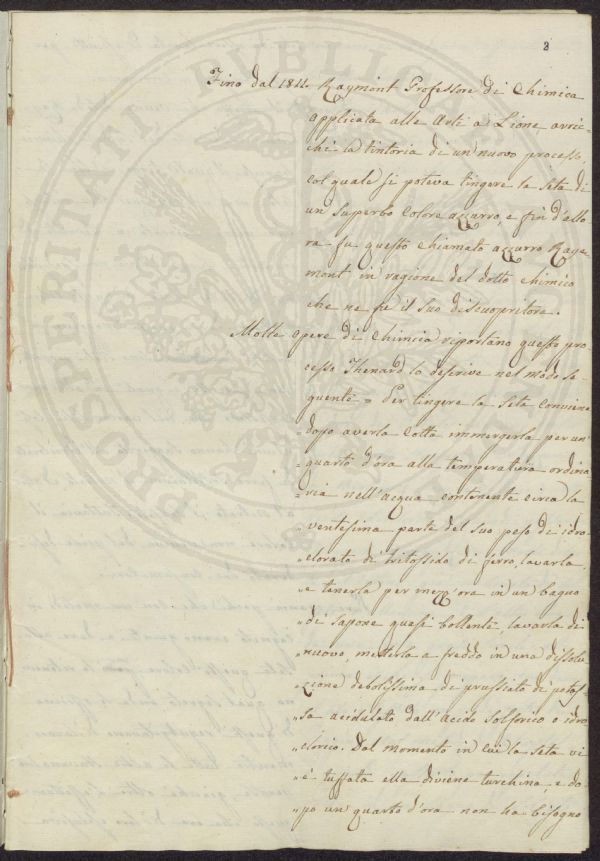 3
Fino dal 1811. Raymont Professore di Chimica
applicata alle Arti a Lione arric-
chì la tintoria di un nuovo processo,
col quale si poteva tingere la seta di
un superbo colore azzurro, e fin d'allo
ra fu questo chiamato azzurro Ray-
mont in ragione del dotto chimico
che ne fu il suo discuopritore.
Molte opere di Chimica riportano questo pro-
cesso Thenard lo descrive nel modo se-
guente = Per tingere la seta conviene
„dopo averla cotta immergerla per un
„quarto d'ora alla temperatura ordina
„ria nell'acqua contenente circa la
„ventesima parte del suo peso di idro-
„clorato di tritossido di ferro, lavarla,
„e tenerla per mezz'ora in un bagno
„di sapone quasi bollente, lavarla di
„nuovo, metterla a freddo in una dissolu-
„zione debolissima di prussiato di potas
„sa acidulato dall'acido solforico o idro
„clorico. Dal momento in cui la seta vi
„è tuffata ella diviene turchina, e do-
„po un quarto d'ora non ha bisogno
PROSPERITATI PUBLICAE